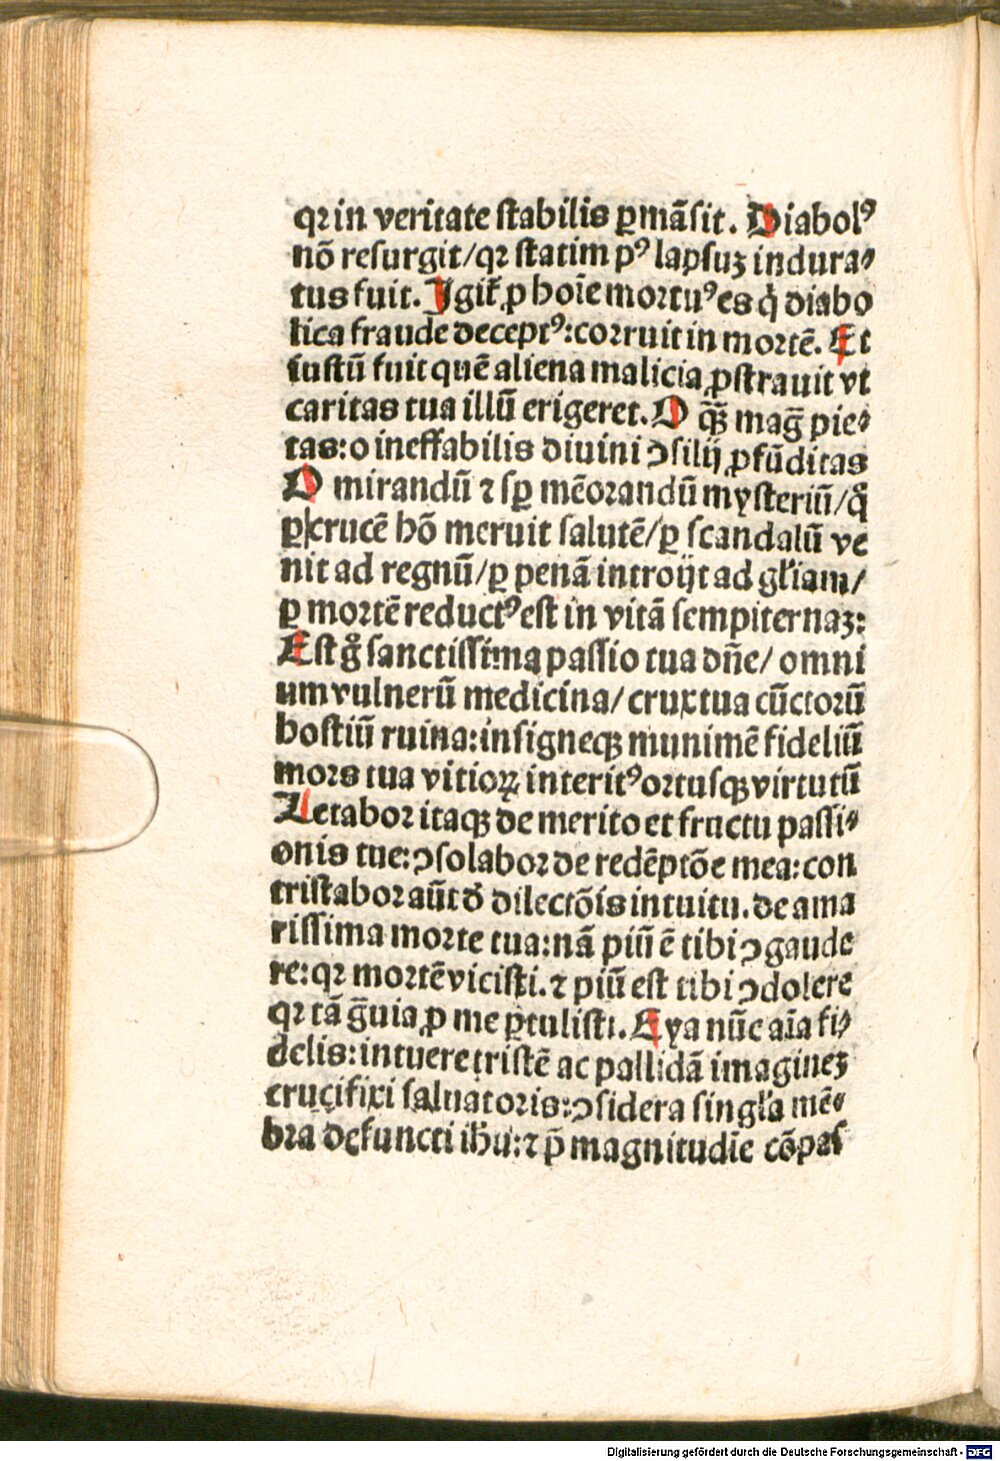 qꝛ in veritate ſtabilis ꝑmãſit. Diabolꝰ
nõ reſurgit/qꝛ ſtatim pꝰ lapſuꝫ indura⸗
tus fuit. Igit᷑ ꝓ hoĩe moꝛtuꝰ es q̇ diabo
lica fraude deceptꝰ: coꝛruit in moꝛtẽ. Et
iuſtũ fuit quẽ aliena malicia ꝓſtrauit vt
caritas tua illũ erigeret. O q̃ꝫ mag̃ pie⸗
tas: o ineffabilis diuini ↄſilij ꝓfũditas
O mirandũ ⁊ ſꝑ mẽoꝛandũ myſteriũ/q̊
ꝑ crucẽ hõ meruit ſalutẽ/ꝑ ſcandalũ ve
nit ad regnũ/ꝑ penã introijt ad gl̃iam/
ꝑ moꝛtẽ reductꝰ eſt in vitã ſempiternaꝫ:
Eſt g̊ ſanctiſſima paſſio tua dñe/ omni
um vulnerũ medicina/ crux tua cũctoꝛũ
hoſtiũ ruina: inſigneqꝫ munimẽ fideliũ
moꝛs tua vitioꝝ interitꝰ oꝛtuſqꝫ virtutũ
Letaboꝛ itaqꝫ de merito et fructu paſſi⸗
onis tue: ↄſolaboꝛ de redẽptõe mea: con
triſtaboꝛ aũt đ dilectõis intuitu. de ama
riſſima moꝛte tua: nã piũ ẽ tibi ↄgaude
re: qꝛ moꝛtẽ viciſti. ⁊ piũ eſt tibi ↄdolere
qꝛ tã g̃uia ꝓ me ꝑtuliſti. Eya nũc aĩa fi⸗
delis: intuere triſtẽ ac pallidã imagineꝫ
crucifixi ſaluatoꝛis: ↄſidera ſingl̃a mẽ⸗
bra defuncti ihũ: ⁊ p̃ magnitudĩe cõpaſ
Digitalisierung gefördert durch die Deutsche Forschungsgemeinschaft - DFG